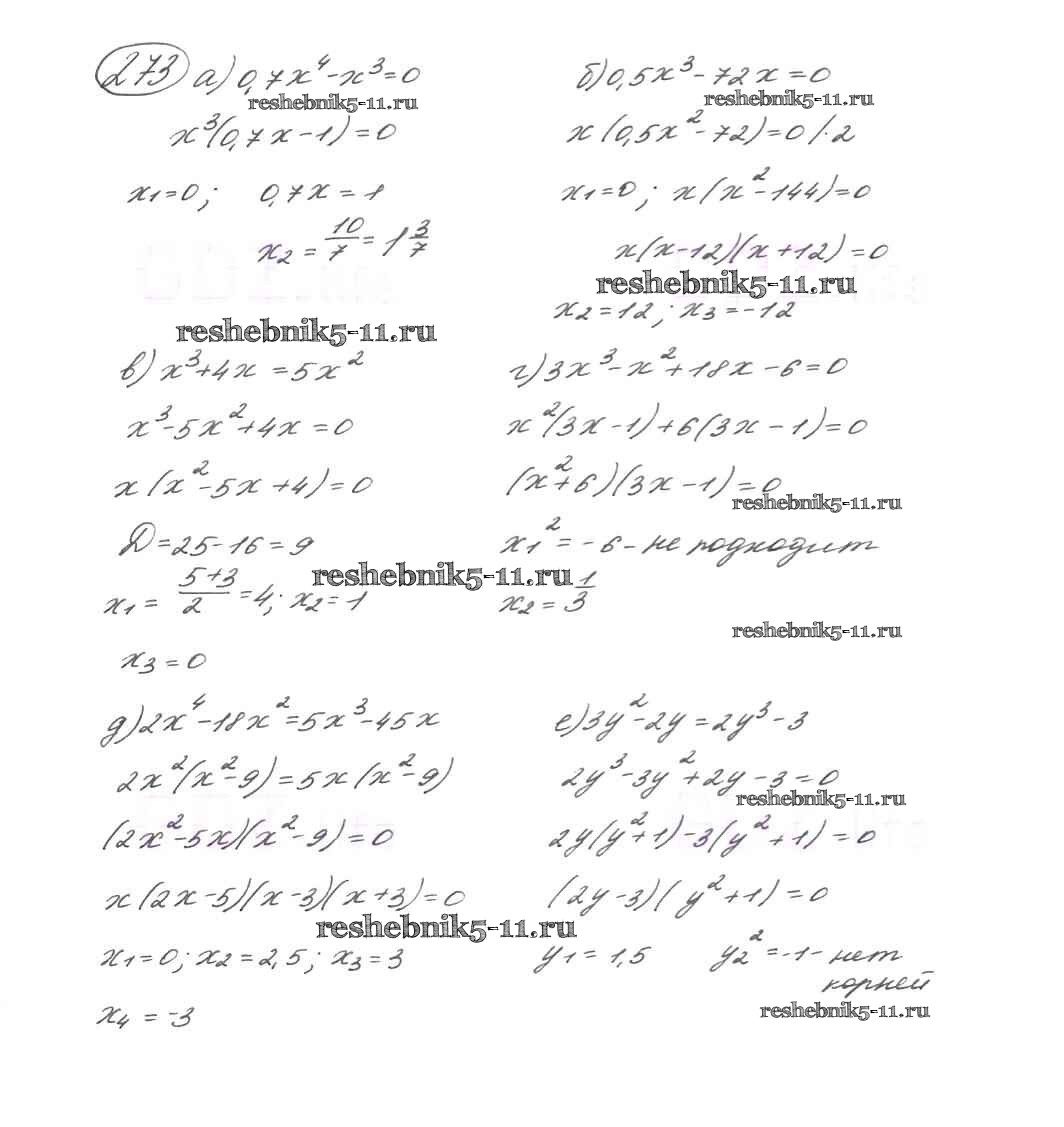 273 а) 0,7x⁴ - x³ = 0
reshebnik5-11.ru
x³(0,7x - 1) = 0
x₁ = 0; 0,7x = 1
x₂ = 10/7 = 1 3/7
reshebnik5-11.ru
б) 0,5x³ - 72x = 0
reshebnik5-11.ru
x(0,5x² - 72) = 0 /·2
x₁ = 0; x(x² - 144) = 0
x(x-12)(x+12) = 0
reshebnik5-11.ru
x₂ = 12; x₃ = -12
в) x³ + 4x = 5x²
x³ - 5x² + 4x = 0
x(x² - 5x + 4) = 0
D = 25 - 16 = 9
reshebnik5-11.ru
x₁ = (5+3)/2 = 4; x₂ = 1
x₃ = 0
г) 3x³ - x² + 18x - 6 = 0
x²(3x - 1) + 6(3x - 1) = 0
(x² + 6)(3x - 1) = 0
reshebnik5-11.ru
x₁² = -6 - не подходит
x₂ = 1/3
reshebnik5-11.ru
д) 2x⁴ - 18x² = 5x³ - 45x
2x²(x² - 9) = 5x(x² - 9)
(2x² - 5x)(x² - 9) = 0
x(2x - 5)(x - 3)(x + 3) = 0
reshebnik5-11.ru
x₁ = 0; x₂ = 2,5; x₃ = 3
x₄ = -3
е) 3y² - 2y = 2y³ - 3
2y³ - 3y² + 2y - 3 = 0
reshebnik5-11.ru
2y(y² + 1) - 3(y² + 1) = 0
(2y - 3)(y² + 1) = 0
y₁ = 1,5 y₂² = -1 - нет
корней
reshebnik5-11.ru